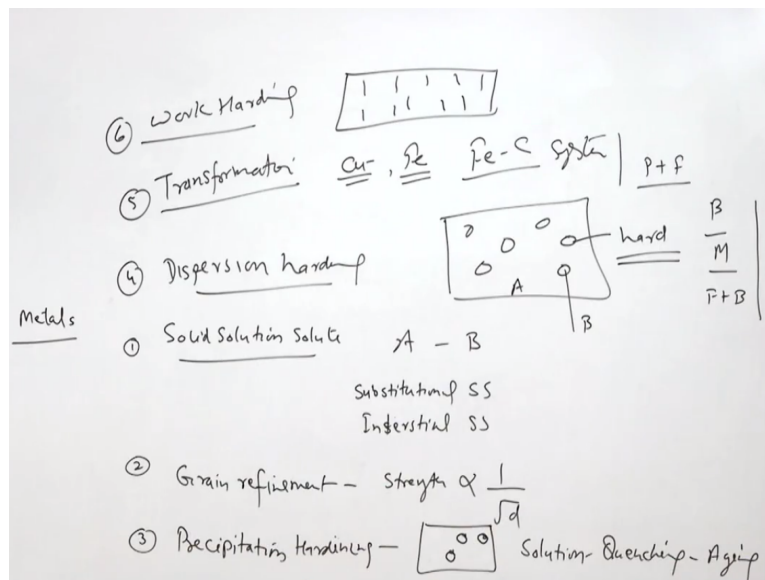 ⑥ Work Harding
⑤ Transformation Cu-, Fe Fe-C System | P+F
④ Dispersion harding A B hard B
M
F+B
Metals
① Solid Solution Solute A - B
Substitutional SS
Interstial SS
② Grain refinement - Strength ∝ 1/√d
③ Precipitation Hardining - Solution - Quenching - Ageing